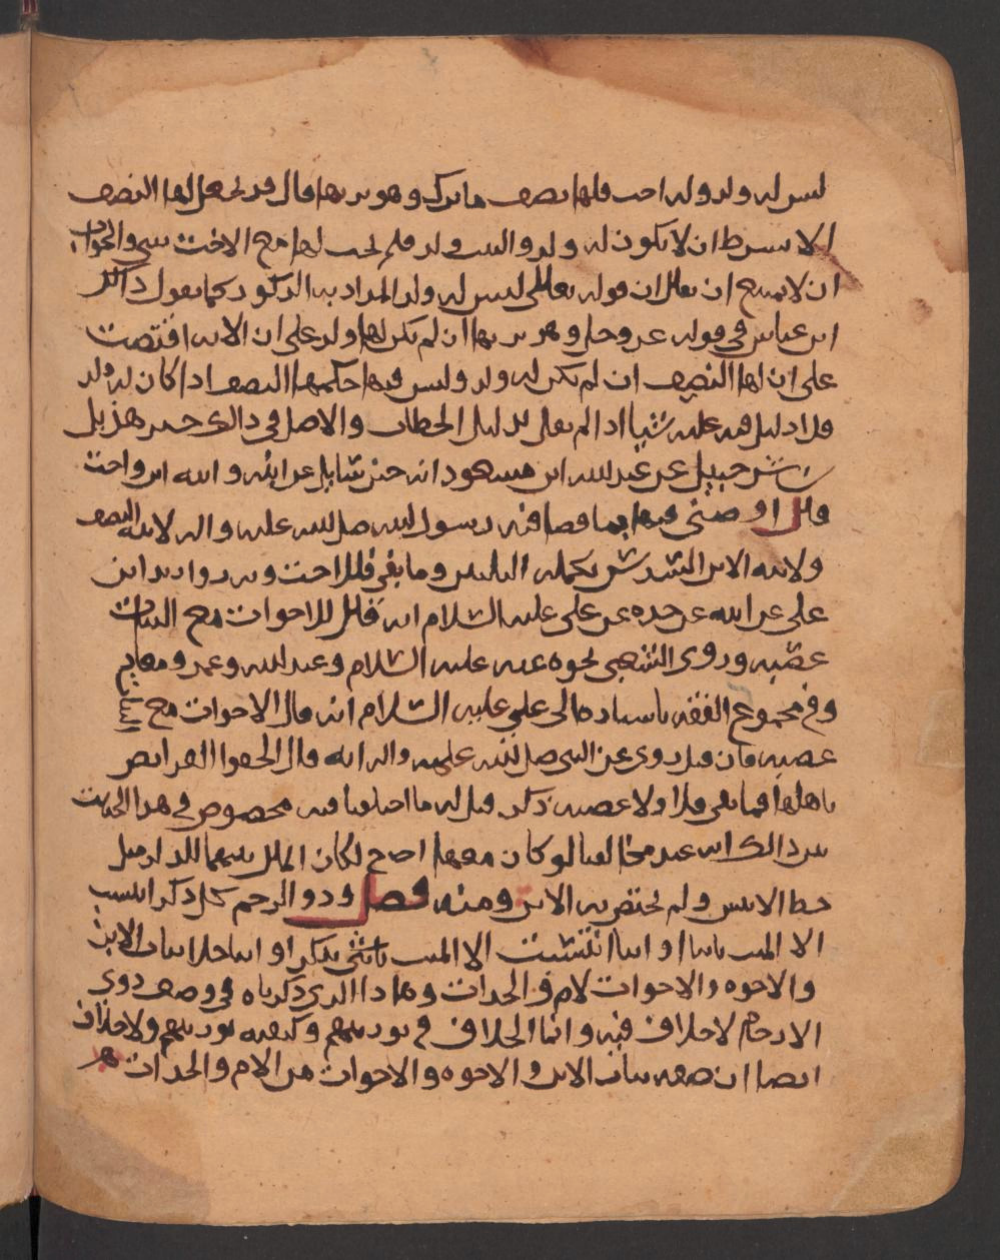 ليس له ولد وله اخت فلها نصف ما ترك وهو يرثها قال فلم يجعل لها النصف
الا بشرط ان لا يكون له ولد والبنت ولد فلم يجب لها مع الاخت شي والجواب
ان لا يمتنع ان يقال ان قوله تعالى ليس له ولد المراد به الذكور كما يقول ذلك
ابن عباس في قوله عز وجل وهو يرثها ان لم يكن لها ولد على ان الايه اقتضت
على ان لها النصف ان لم يكن له ولد وليس فيها حكمها النصف اذا كان له ولد
فلا دليل فيه عليه شيا اذا لم يقل بدليل الخطاب والاصل في ذلك خبر هزيل
بن شرحبيل عن عبد الله ابن مسعود انه حين سايل عن ابنه وابنه ابن واخت
قال اوصني فيها بما قضا فيه رسول الله صلى الله عليه واله لابنته النصف
ولابنه الابن السدس تكمله الثلثين وما بقي فللاخت وروا زيد ابن
علي عن ابيه عن جده عن علي عليه السلام انه قال للاخوات مع البنات
عصبه وروى الشعبي نحوه عنه عليه السلام وعبد الله وعمر ومعاذ
وفي مجموع الفقه باسناده الى علي عليه السلام انه قال الاخوات مع البنات
عصبه فان قيل روى عن النبي صلى الله عليه واله انه قال الحقوا الفرايض
باهلها فما بقي فلاولا عصبه ذكر قيل له ما اختلفنا فيه مخصوص في هذا الحديث
ذلك انه عند مخالفنا لو كان معها اخ لكان المال بينهما للذكر مثل
حظ الانثيين ولم يختص به الابن ومنه فصل وذو الرحم كل ذكر انتسب
الا الميت بانثا او انثا انتسبت الا الميت بانثى بذكر او انثا خلا بنات الابن
والاخوه والاخوات لام والجدات وهاذا الذي ذكرناه في وصف ذوي
الارحام لا خلاف فيه وانما الخلاف في توريثهم وكيفيه توريثهم ولا خلاف
ايضا ان صفه بنات الابن والاخوه والاخوات من الام والجدات